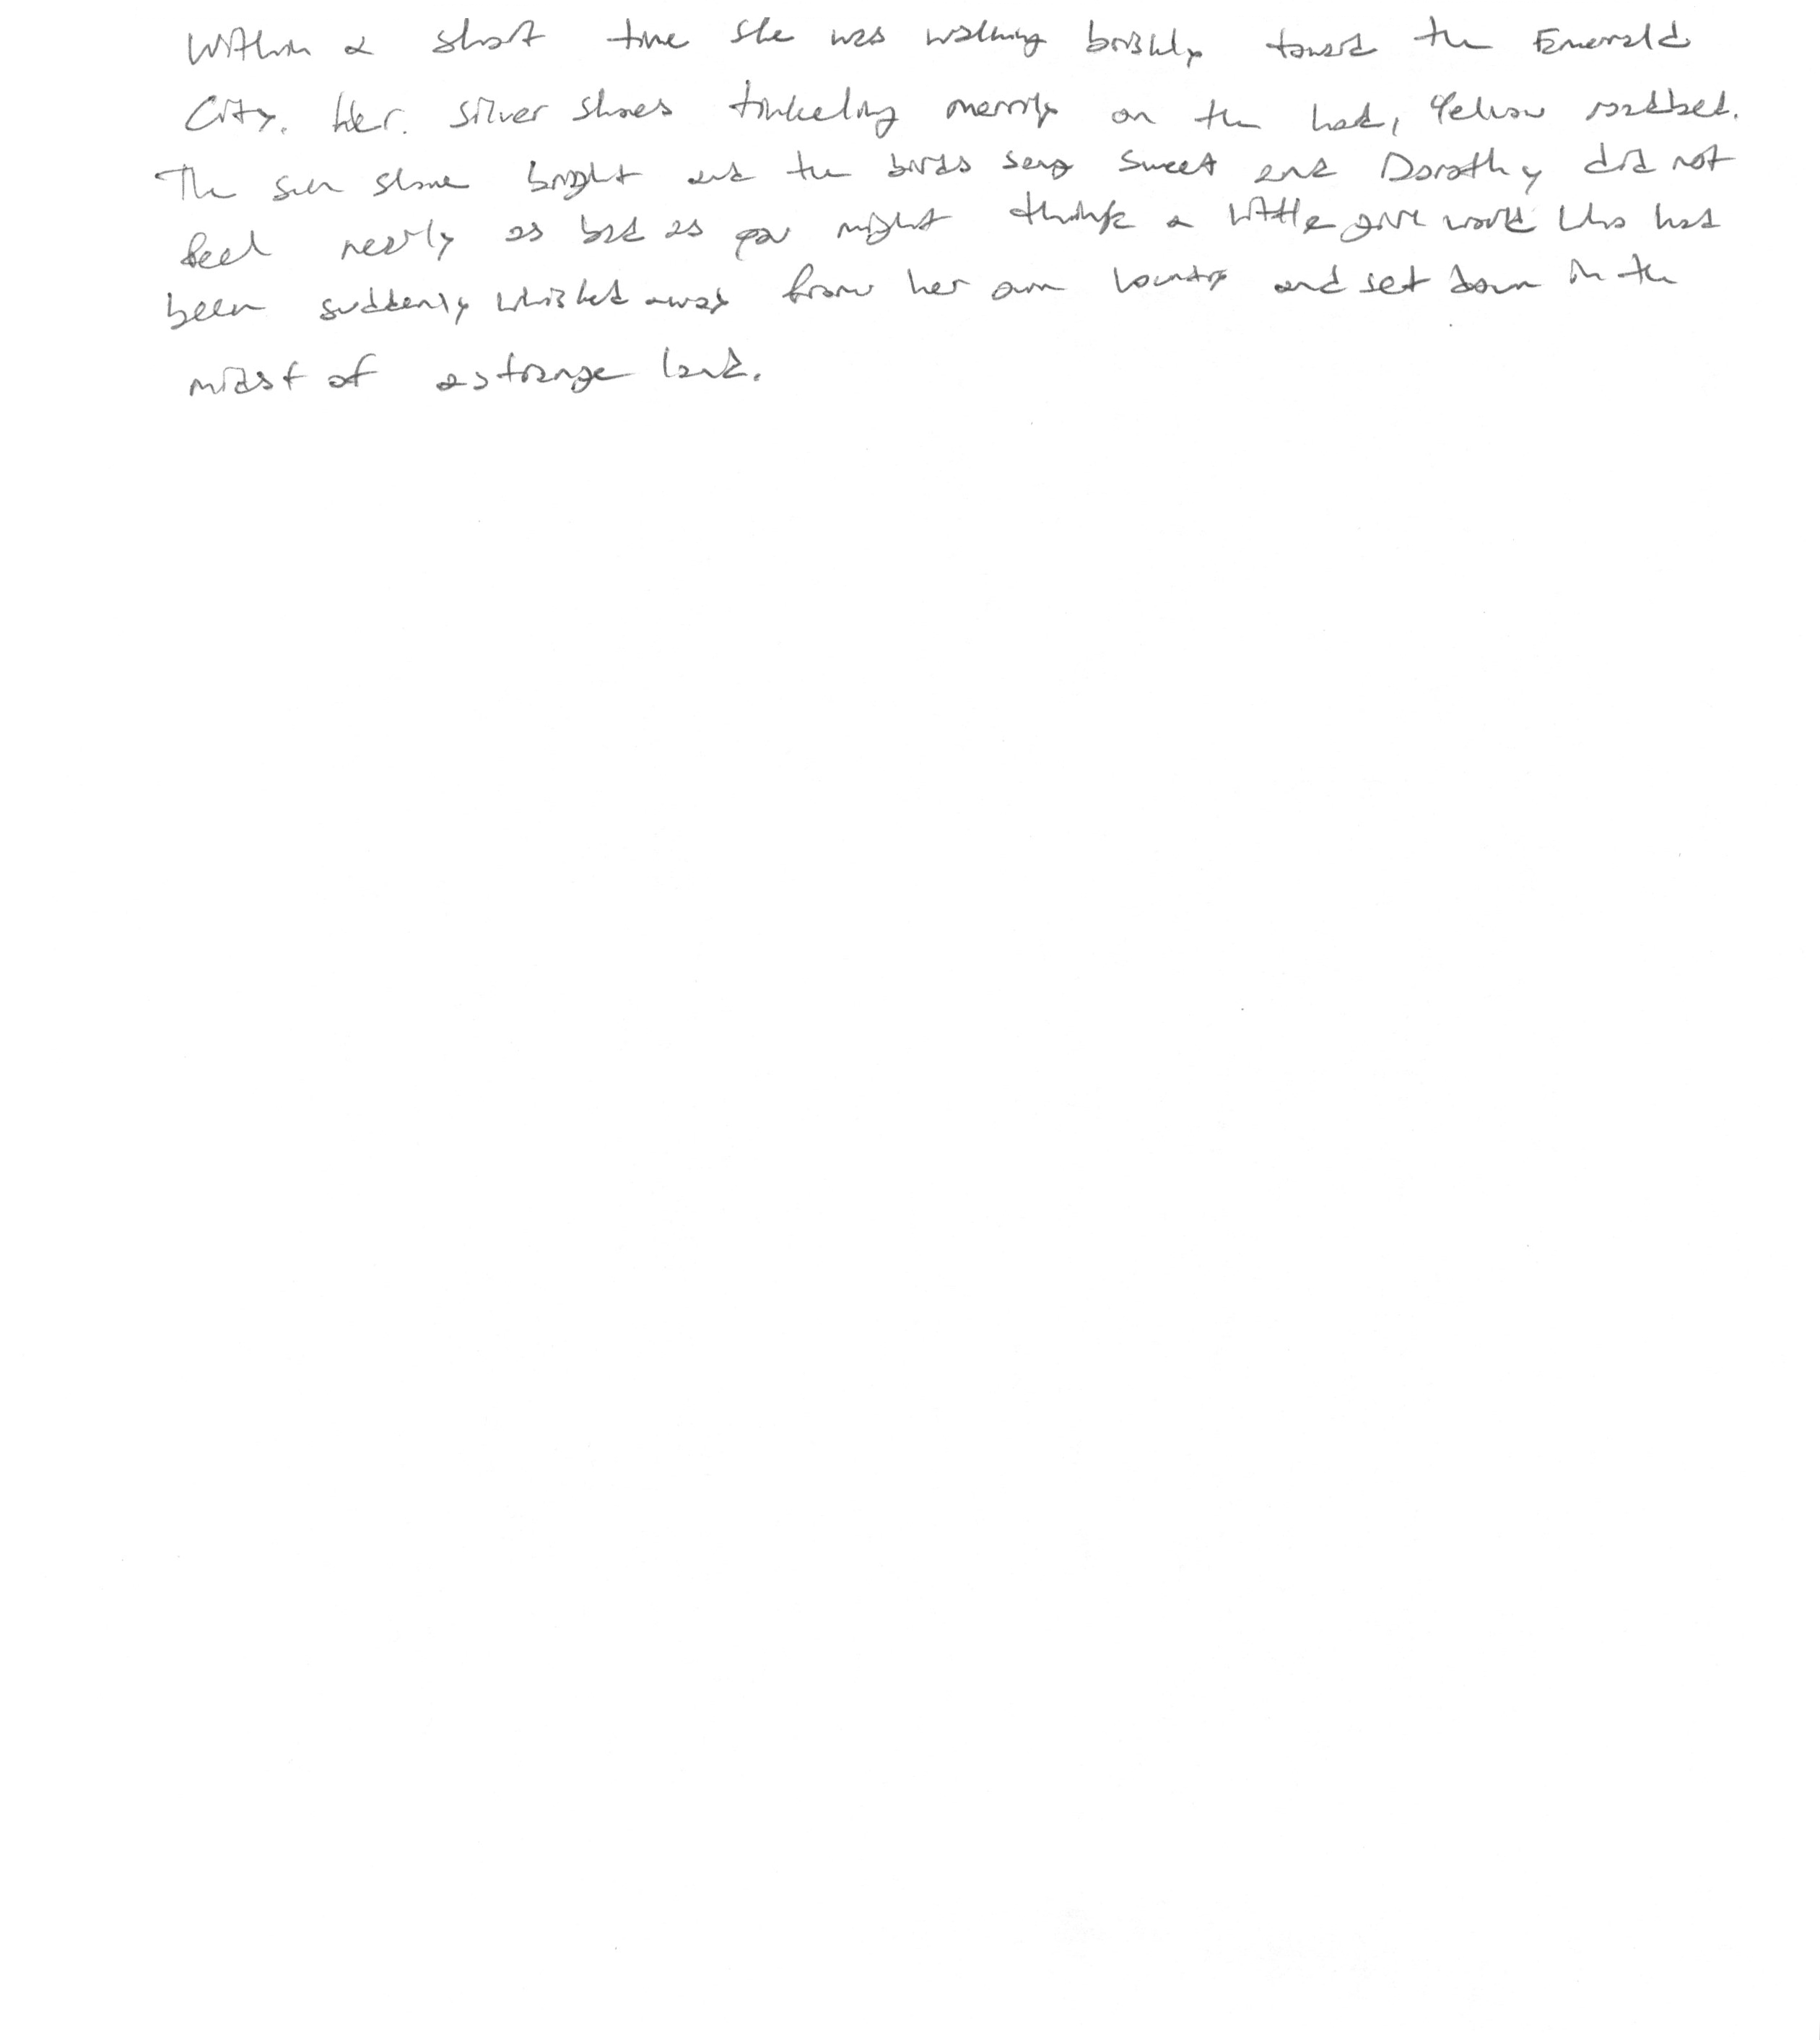 Within a short time she was walking briskly toward the Emerald
City. Her. Silver Shoes tinkeling merrily on the hard, Yellow roadbed.
The sun shone bright and the birds sang sweet and Dorothy did not
feel nearly as bad as you might think a little girl would who had
been suddenly whisked away from her own country and set down in the
midst of a strange land.